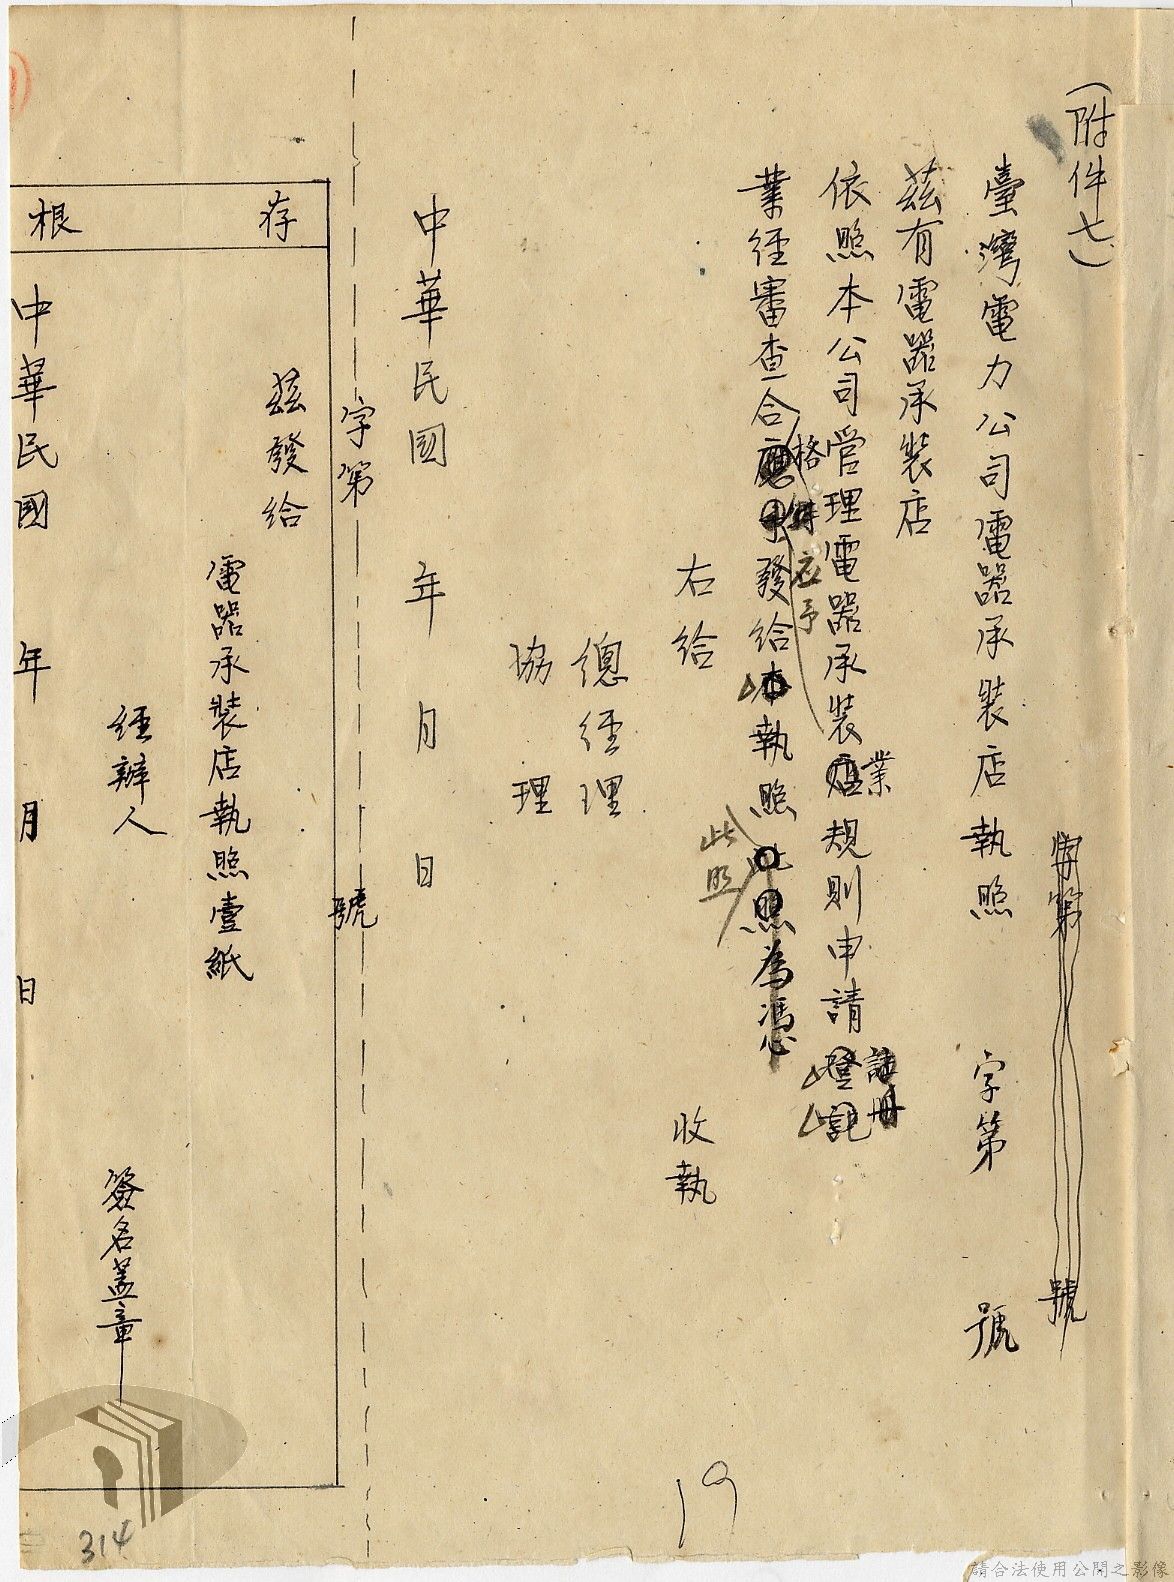 （附件七）
字第　號
臺灣電力公司電器承裝店執照　字第　號
茲有電器承裝店
依照本公司管理電器承裝店規則申請登記
業
註冊
業經審查合應予發給本執照此照為憑
格
應予
此照
右給　收執
總經理
協理
中華民國　年　月　日
字第　號
存根
茲發給
電器承裝店執照壹紙
經辦人　簽名蓋章
中華民國　年　月　日
19
314
請合法使用公開之影像